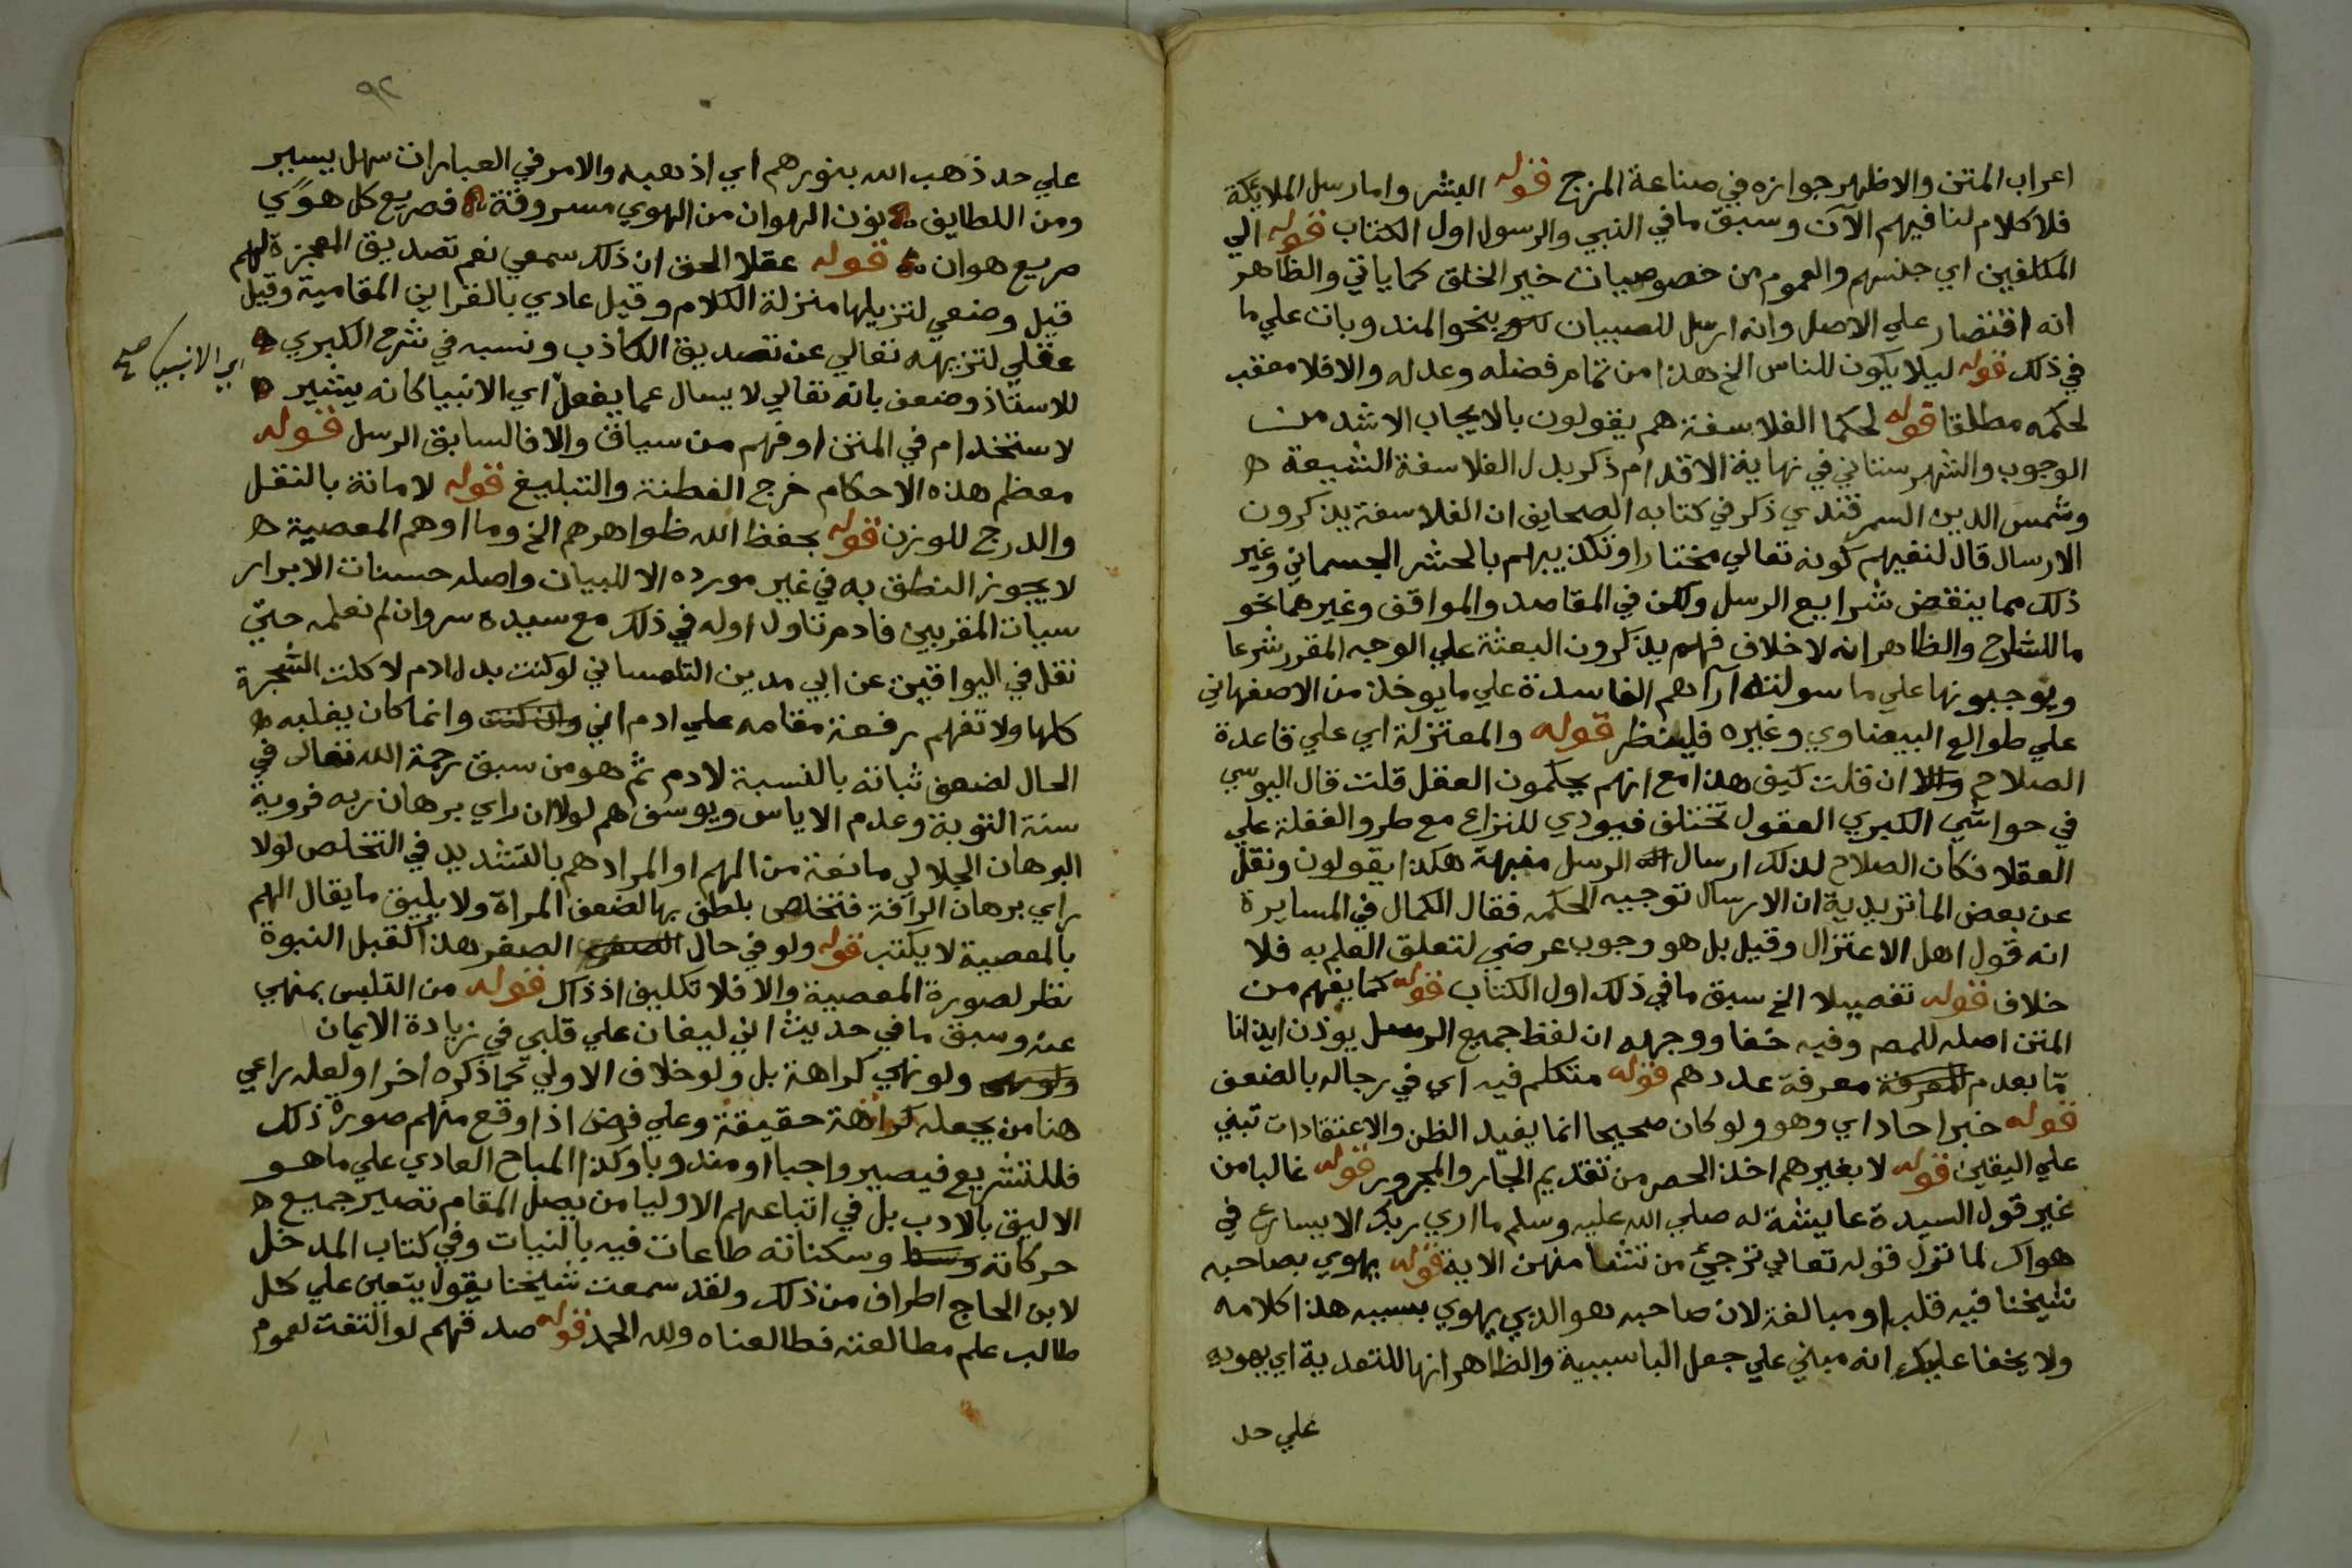 اعراب المتن والاظهر جوازه في صناعة المزج قوله البشر واما رسل الملايكة
فلا كلام لنا فيهم الآن وسبق ما في النبي والرسول اول الكتاب قوله الي
المكلفين اي جنسهم والعموم من خصوصيات خير الخلق كما ياتي والظاهر
انه اقتصار علي الاصل وانه ارسل للصبيان بنحو المندوبات علي ما
في ذلك قوله ليلا يكون للناس الخ هذا من تمام فضله وعدله والا فلا معقب
لحكمه مطلقا قوله لحكما الفلاسفة هم يقولون بالايجاب الاشد من
الوجوب والشهرستاني في نهاية الاقدام ذكر بدل الفلاسفة الشيعة ه
وشمس الدين السمرقندي ذكر في كتابه الصحايف ان الفلاسفة يذكرون
الارسال قال لنفيهم كونه تعالي مختارا وتكذيبهم بالحشر الجسماني وغير
ذلك مما ينقض شرايع الرسل ولكن في المقاصد والمواقف وغيرهما نحو
ما للشارح والظاهر انه لا خلاف فهم يذكرون البعثة علي الوجه المقرر شرعا
ويوجبونها علي ما سولته آراهم الفاسدة علي ما يوخذ من الاصفهاني
علي طوالع البيضاوي وغيره فلينظر قوله والمعتزلة اي علي قاعدة
الصلاح والا ان قلت كيف هذا مع انهم يحكمون العقل قلت قال اليوسي
في حواشي الكبري العقول تختلف فيودي للنزاع مع طرو الغفلة علي
العقلا فكان الصلاح لذلك ارسال الرسل منبهة هكذا يقولون ونقل
عن بعض الماتريدية ان الارسال توجبه الحكمه فقال الكمال في المسايرة
انه قول اهل الاعتزال وقيل بل هو وجوب عرضي لتعلق العلم به فلا
خلاف قوله تفصيلا الخ سبق ما في ذلك اول الكتاب قوله كما يفهم من
المتن اصله للمص وفيه خفا ووجهه ان لفظ جميع الرسل يوذن ايذانا
مّا بعدم المعرفة معرفة عددهم قوله متكلم فيه اي في رجاله بالضعف
قوله خبر احاد اي وهو ولو كان صحيحا انما يفيد الظن والاعتقادات تبني
علي اليقين قوله لا بغيرهم اخذ الحصر من تقديم الجار والمجرور قوله غالبا من
غير قول السيدة عايشة له صلي الله عليه وسلم ما اري ربك الا يسارع في
هواك لما نزل قوله تعالي ترجئ من تشا منهن الاية قوله يهوي بصاحبه
شيخنا فيه قلب او مبالغة لان صاحبه هو الذي يهوي بسببه هذا كلامه
ولا يخفا عليك انه مبني علي جعل البا سببية والظاهر انها للتعدية اي يهويه
علي حد
٩٢
علي حد ذهب الله بنورهم اي اذهبه والامر في العبارات سهل يسير
ومن اللطايف نون الهوان من الهوي مسروقة فصريع كل هوًي
صريع هوان قوله عقلا الحق ان ذلك سمعي نعم تصديق المعجزة لهم
قيل وضعي لتنزيلها منزلة الكلام وقيل عادي بالقراين المقامية وقيل
عقلي لتنزيهه تعالي عن تصديق الكاذب ونسبه في شرح الكبري ه
للاستاذ وضعف بانه تعالي لا يسال عما يفعل اي الانبيا كانه يشير ه
اي الانبيا صح
لاستخدام في المتن او فهم من سياق والا فالسابق الرسل قوله
معظم هذه الاحكام خرج الفطنة والتبليغ قوله لامانة بالنقل
والدرج للوزن قوله بحفظ الله ظواهرهم الخ وما اوهم المعصية ه
لا يجوز النطق به في غير مورده الا للبيان واصله حسنات الابرار
سيات المقربين فادم تناول اوله في ذلك مع سيده سر وان لم نعلمه حتي
نقل في اليواقيت عن ابي مدين التلمساني لو كنت بدل ادم لاكلت الشجرة
كلها ولا تفهم رفعة مقامه علي ادم اني وان كنت وانما كان يغلبه ه
الحال لضعف ثباته بالنسبة لادم ثم هو من سبق رحمة الله تعالي في
سنة التوبة وعدم الاياس ويوسف هم لولا ان راي برهان ربه فروية
البرهان الجلالي مانعة من الهم او المراد هم بالتشديد في التخلص لولا
راي برهان الرافة فتخلص بلطف بها لضعف المراة ولا يليق ما يقال الهم
بالمعصية لا يكتب قوله ولو في حال الصغر هذا كقبل النبوة
نظر لصورة المعصية والا فلا تكليف اذ ذاك قوله من التلبس بمنهي
عنه وسبق ما في حديث اني ليغان علي قلبي في زيادة الايمان
ولو نهي كراهة بل ولو خلاف الاولي كما ذكره اخرا ولعله راعي
هنا من يجعله كراهة حقيقة وعلي فرض اذا وقع منهم صورة ذلك
فللتشريع فيصير واجبا او مندوبا وكذا المباح العادي علي ما هو
الاليق بالادب بل في اتباعهم الاوليا من يصل المقام تصير جميع ه
حركاته وسكناته طاعات فيه بالنيات وفي كتاب المدخل
لابن الحاج اطراف من ذلك ولقد سمعت شيخنا يقول يتعين علي كل
طالب علم مطالعته فطالعناه ولله الحمد قوله صدقهم لو التفت لعموم